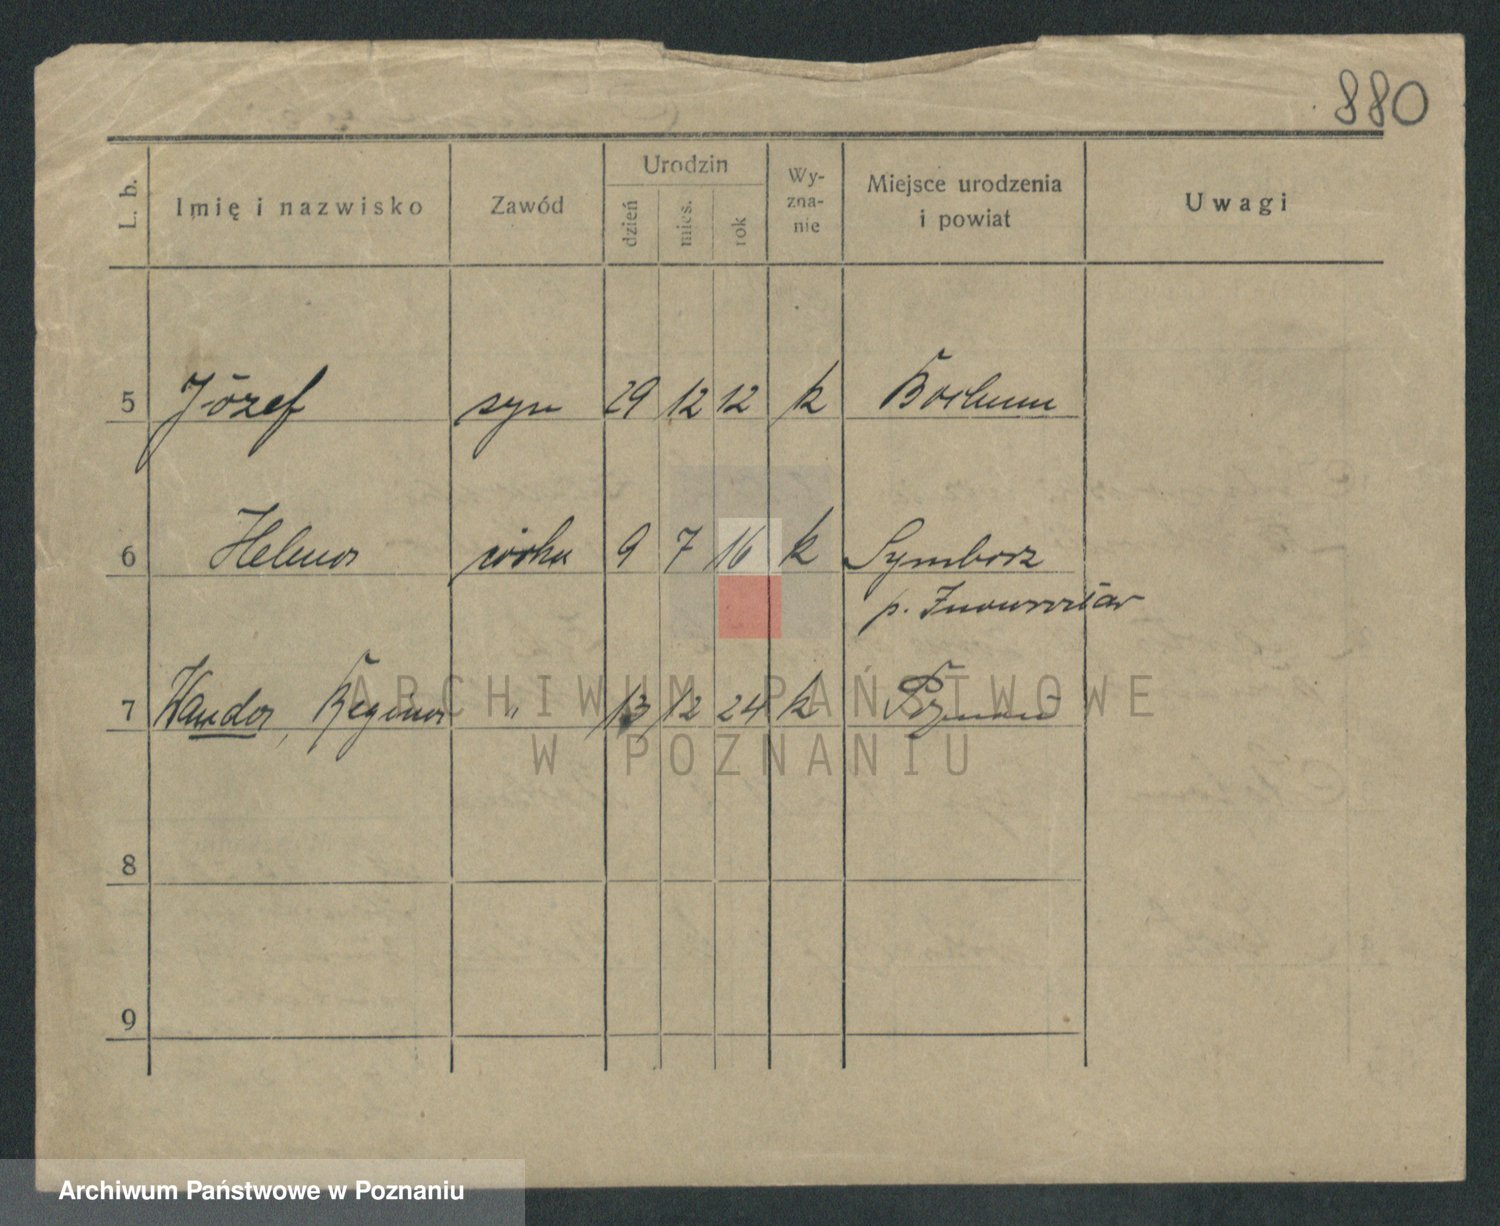 880
L. b.
Imię i nazwisko
Zawód
Urodzin
dzień
mies.
rok
Wy-
zna-
nie
Miejsce urodzenia
i powiat
Uwagi
5 Józef syn 29 12 12 k Bochum
6 Helena córka 9 7 16 k Symborz
p. Inowrocław
7 Wanda, Regina " 13 12 24 k Poznań
8
9
ARCHIWUM PAŃSTWOWE
W POZNANIU
Archiwum Państwowe w Poznaniu